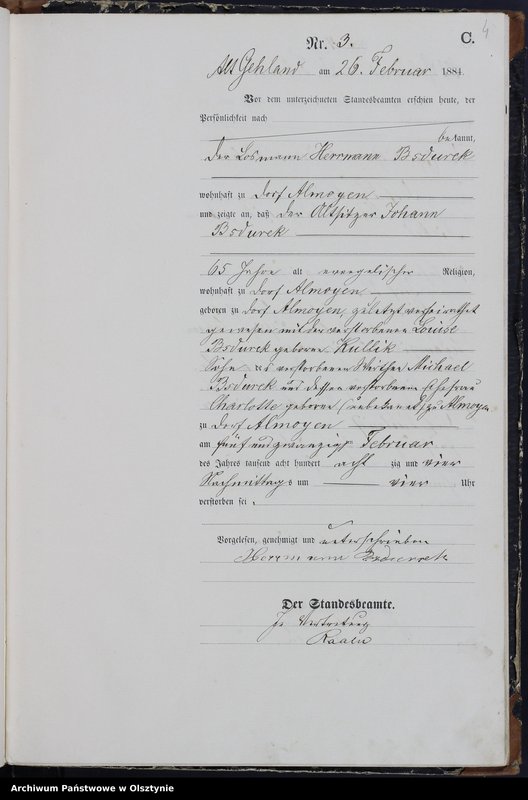 4
Nr. 3. C.
Alt Gehland am 26. Februar 1884
Vor dem unterzeichneten Standesbeamten erschien heute, der
Persönlichkeit nach
bekannt,
der Losmann Herrmann Bsdurek
wohnhaft zu Dorf Almoyen
und zeigte an, daß der Altsitzer Johann
Bsdurek
65 Jahre alt evangelischer Religion,
wohnhaft zu Dorf Almoyen
geboren zu Dorf Almoyen, zuletzt verheirathet
gewesen mit der verstorbenen Louise
Bsdurek geborne Kullik
Sohn des verstorbenen Wirths Michael
Bsdurek und dessen verstorbenen Ehefrau
Charlotte geborne (unbekannt) zu Almoyen
zu Dorf Almoyen
am fünf und zwanzigsten Februar
des Jahres tausend acht hundert acht zig und vier
Nachmittags um vier Uhr
verstorben sei.
Vorgelesen, genehmigt und unterschrieben
Herrmann Bsdurrek
Der Standesbeamte.
In Vertretung
Archiwum Państwowe w Olsztynie